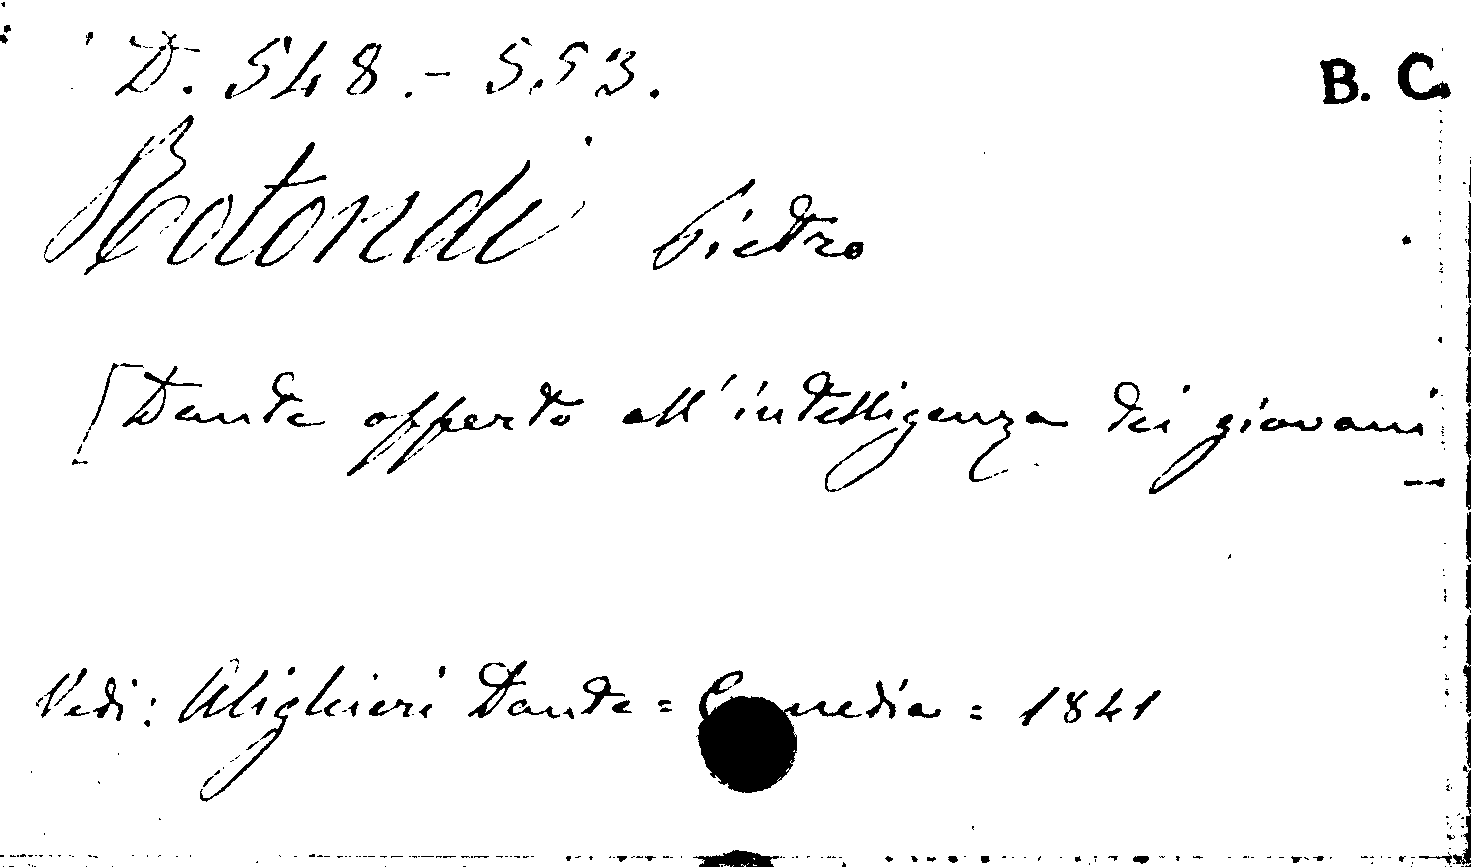 D. 548.- 553.
B. C.
Rotondi Pietro
[Dante offerto all'intelligenza dei giovani
Vedi: Alighieri Dante = Comedia = 1841